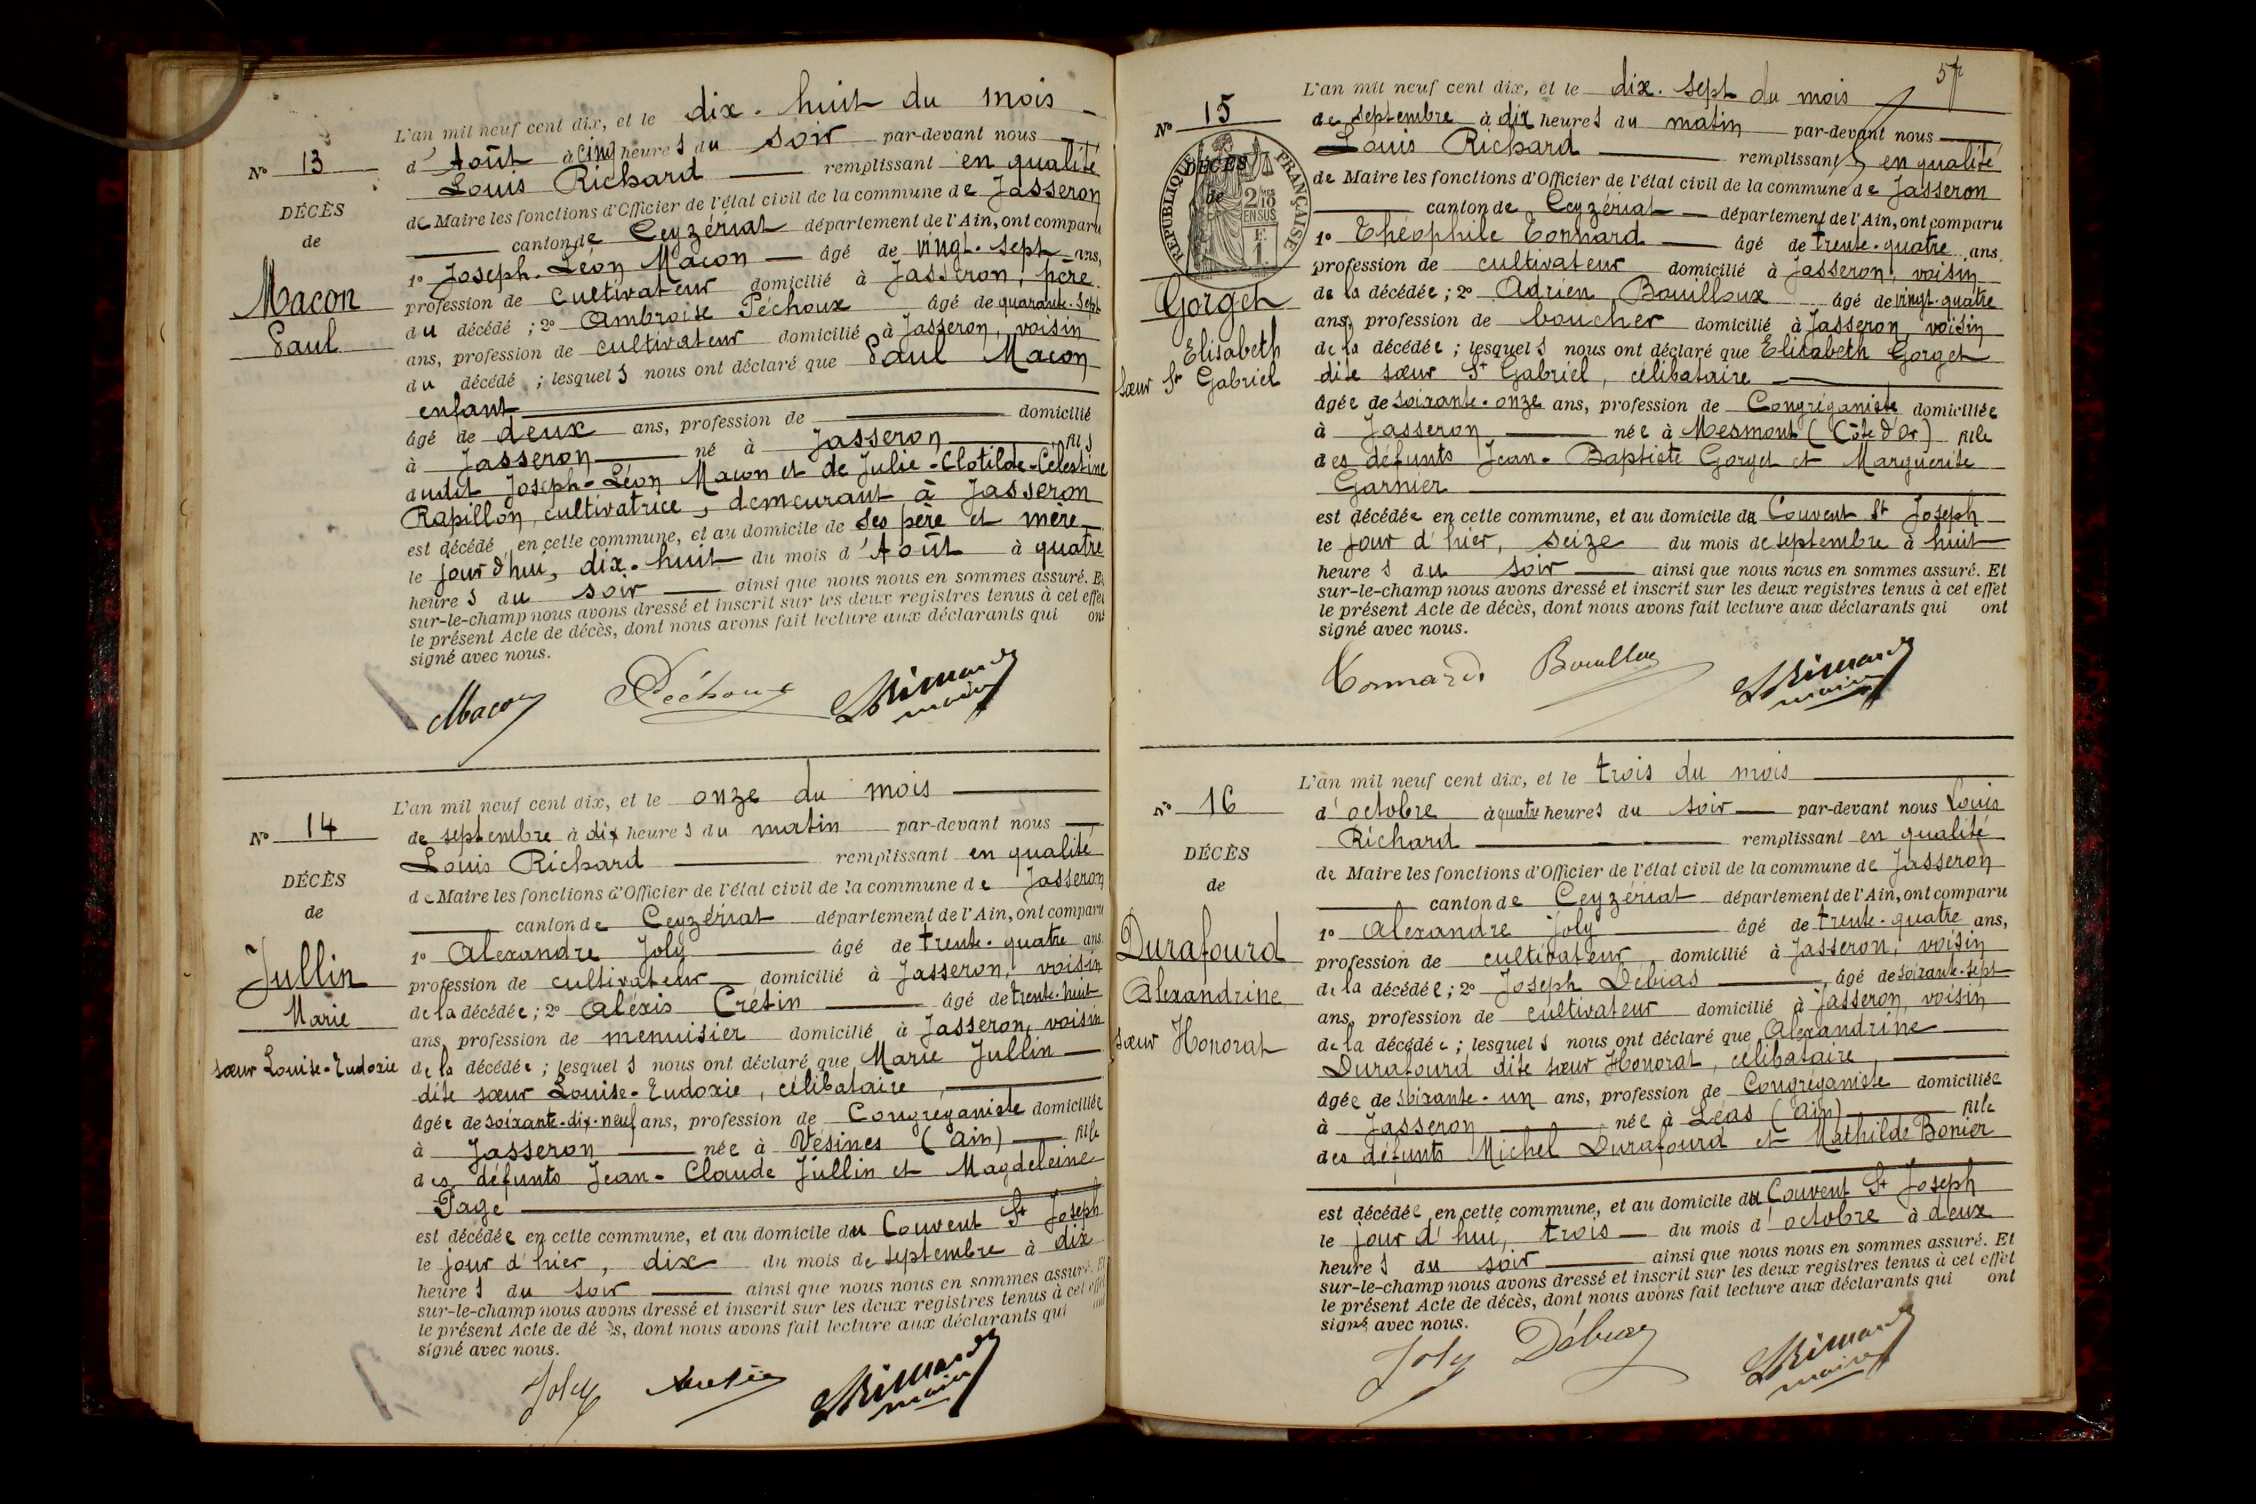 L'an mil neuf cent dix, et le dix-huit du mois
N° 13
d'Août à cinq heures du soir par-devant nous
Louis Richard remplissant en qualité
DÉCÈS
de Maire les fonctions d'Officier de l'état civil de la commune de Jasseron
de
canton de Ceyzériat département de l'Ain, ont comparu
1° Joseph-Léon Macon âgé de vingt-sept ans,
Macon
profession de cultivateur domicilié à Jasseron, père
Paul
du décédé ; 2° Ambroise Péchoux âgé de quarante-sept
ans, profession de cultivateur domicilié à Jasseron, voisin
du décédé ; lesquels nous ont déclaré que Paul Macon
enfant
âgé de deux ans, profession de domicilié
à Jasseron né à Jasseron fils
dudit Joseph-Léon Macon et de Julie-Clotilde-Célestine
Rapillon, cultivatrice, demeurant à Jasseron
est décédé en cette commune, et au domicile de ses père et mère
le jour d'hui, dix-huit du mois d'Août à quatre
heures du soir ainsi que nous nous en sommes assuré. Et
sur-le-champ nous avons dressé et inscrit sur les deux registres tenus à cet effet
le présent Acte de décès, dont nous avons fait lecture aux déclarants qui ont
signé avec nous.
Macon Péchoux LRichard
maire
L'an mil neuf cent dix, et le onze du mois
N° 14
de septembre à dix heures du matin par-devant nous
Louis Richard remplissant en qualité
DÉCÈS
de Maire les fonctions d'Officier de l'état civil de la commune de Jasseron
de
canton de Ceyzériat département de l'Ain, ont comparu
1° Alexandre Joly âgé de trente-quatre ans
Jullin
profession de cultivateur domicilié à Jasseron, voisin
Marie
de la décédée ; 2° Aléxis Crétin âgé de trente-huit
ans, profession de menuisier domicilié à Jasseron, voisin
sœur Louise-Eudoxie
de la décédée ; lesquels nous ont déclaré que Marie Jullin
dite sœur Louise-Eudoxie, célibataire,
âgée de soixante-dix-neuf ans, profession de Congréganiste domiciliée
à Jasseron née à Vésines (Ain) fille
des défunts Jean-Claude Jullin et Magdeleine
Page
est décédée en cette commune, et au domicile du Couvent St Joseph
le jour d'hier, dix du mois de septembre à dix
heures du soir ainsi que nous nous en sommes assuré. Et
sur-le-champ nous avons dressé et inscrit sur les deux registres tenus à cet effet
le présent Acte de décès, dont nous avons fait lecture aux déclarants qui ont
signé avec nous.
Joly Crétin LRichard
maire
57
L'an mil neuf cent dix, et le dix-sept du mois
N° 15
de septembre à dix heures du matin par-devant nous
Louis Richard remplissant en qualité
DÉCÈS
de
RÉPUBLIQUE FRANÇAISE
2/10 EN SUS
F. 1.
de Maire les fonctions d'Officier de l'état civil de la commune de Jasseron
canton de Ceyzériat département de l'Ain, ont comparu
1° Théophile Tonnard âgé de trente-quatre ans
profession de cultivateur domicilié à Jasseron, voisin
Gorget
de la décédée ; 2° Adrien Bouilloux âgé de vingt-quatre
ans, profession de boucher domicilié à Jasseron, voisin
Elisabeth
de la décédée ; lesquels nous ont déclaré que Elisabeth Gorget
sœur St Gabriel
dite sœur St Gabriel, célibataire
âgée de soixante-onze ans, profession de Congréganiste domiciliée
à Jasseron née à Mesmont (Côte d'Or) fille
des défunts Jean-Baptiste Gorget et Marguerite
Garnier
est décédée en cette commune, et au domicile du Couvent St Joseph
le jour d'hier, seize du mois de septembre à huit
heures du soir ainsi que nous nous en sommes assuré. Et
sur-le-champ nous avons dressé et inscrit sur les deux registres tenus à cet effet
le présent Acte de décès, dont nous avons fait lecture aux déclarants qui ont
signé avec nous.
Tonnard Bouilloux LRichard
maire
L'an mil neuf cent dix, et le trois du mois
N° 16
d'octobre à quatre heures du soir par-devant nous Louis
Richard remplissant en qualité
DÉCÈS
de Maire les fonctions d'Officier de l'état civil de la commune de Jasseron
de
canton de Ceyzériat département de l'Ain, ont comparu
1° Alexandre Joly âgé de trente-quatre ans,
Durafourd
profession de cultivateur domicilié à Jasseron, voisin
Alexandrine
de la décédée ; 2° Joseph Débias âgé de soixante-sept
ans, profession de cultivateur domicilié à Jasseron, voisin
sœur Honorat
de la décédée ; lesquels nous ont déclaré que Alexandrine
Durafourd dite sœur Honorat, célibataire,
âgée de soixante-un ans, profession de Congréganiste domiciliée
à Jasseron née à Léas (Ain) fille
des défunts Michel Durafourd et Mathilde Bonier
est décédée en cette commune, et au domicile du Couvent St Joseph
le jour d'hui, trois du mois d'octobre à deux
heures du soir ainsi que nous nous en sommes assuré. Et
sur-le-champ nous avons dressé et inscrit sur les deux registres tenus à cet effet
le présent Acte de décès, dont nous avons fait lecture aux déclarants qui ont
signé avec nous.
Joly Débias LRichard
maire